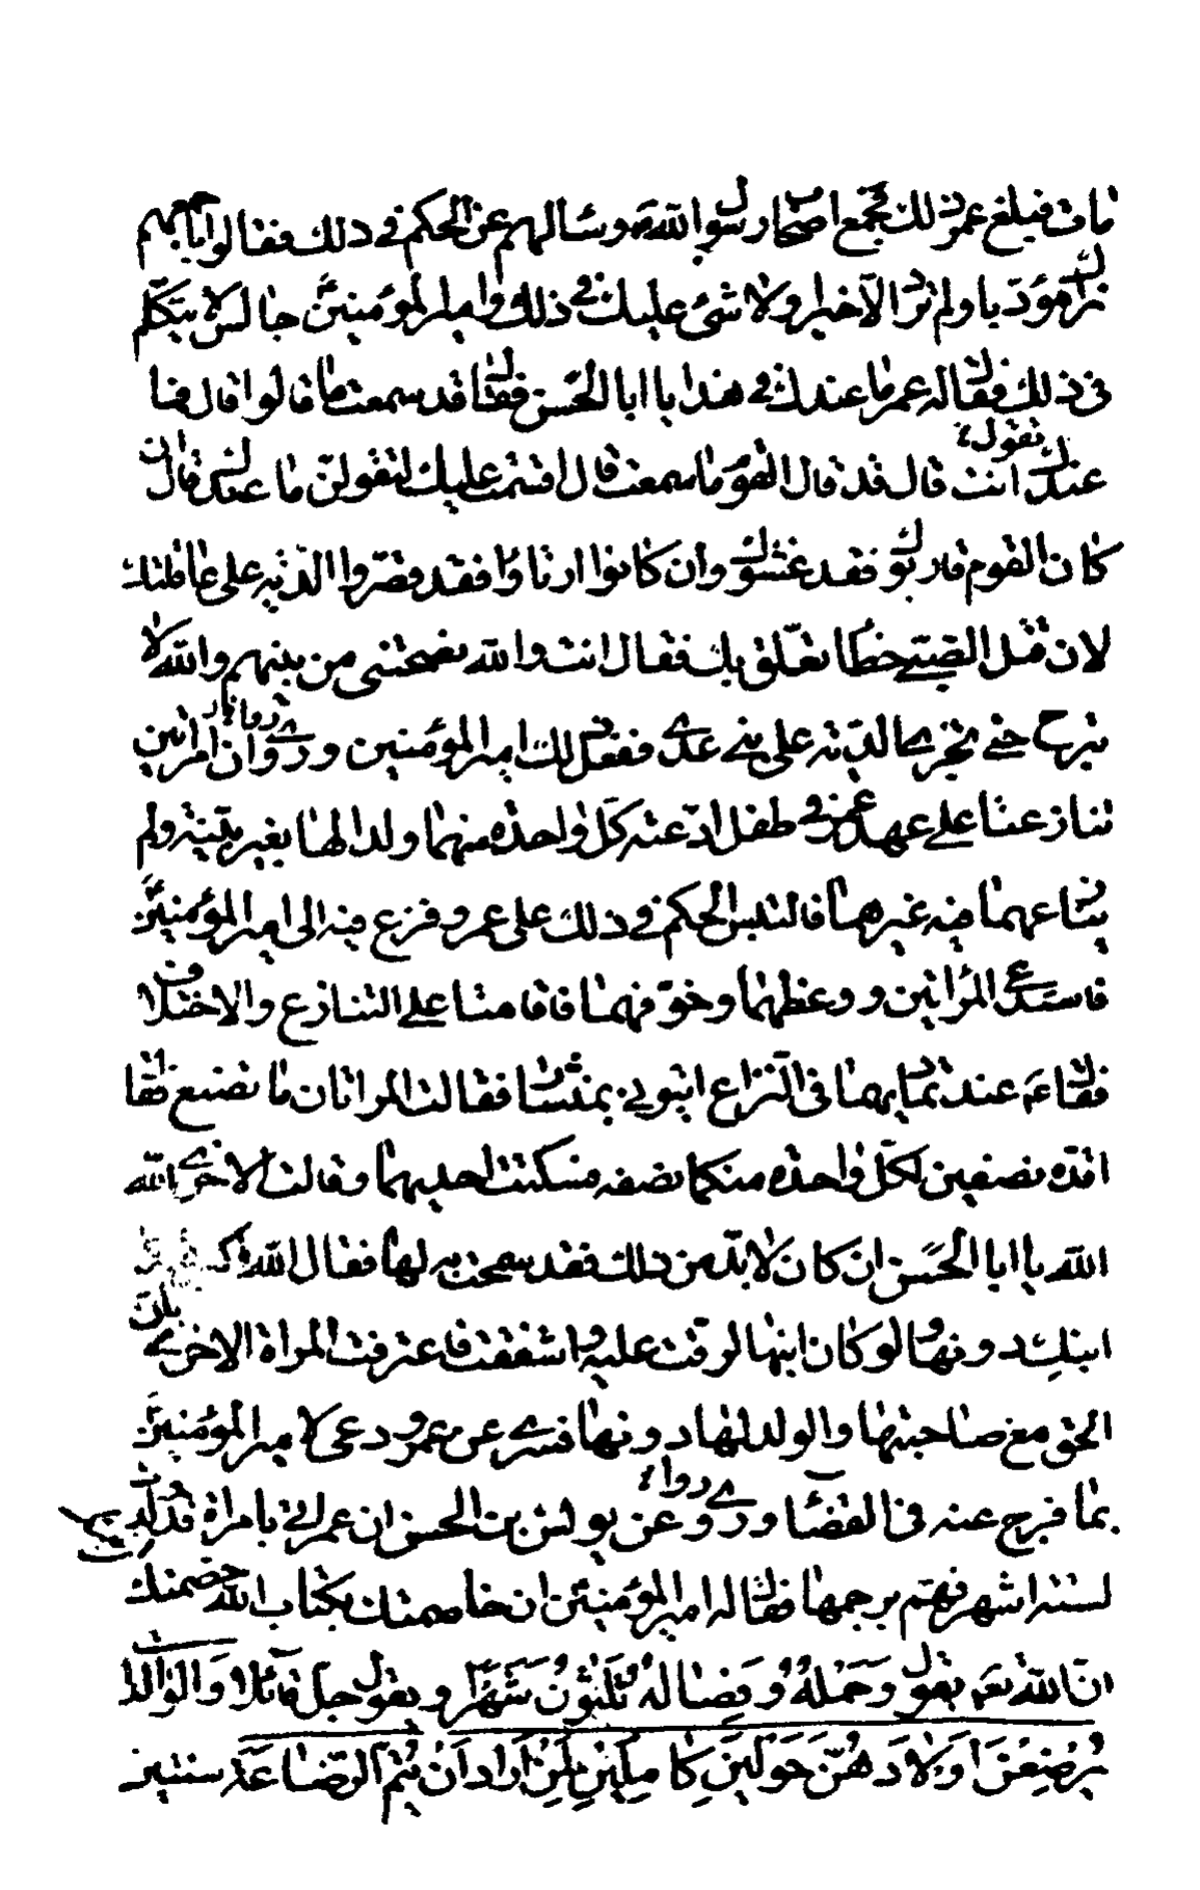 مات فبلغ عمر ذلك فجمع اصحاب رسول الله ص وسئالهم عن الحكم في ذلك فقالوا باجمعهم
نراك مؤدبا ولم ترد الا خيرا ولا شئ عليك في ذلك وامير المؤمنين ع جالس لا يتكلم
في ذلك فقال له عمر ما عندك في هذا يا ابا الحسن فقال قد سمعت ما قالوا قال فما
تقول
عندك انت قال قد قال القوم ما سمعت قال اقسمت عليك لتقولن ما عندك قال ان
كان القوم قاربوك فقد غشوك وان كانوا ارتاؤا فقد قصروا الدية على عاقلتك
لان قتل الصبي خطا تعلق بك فقال انت والله نصحتني من بينهم والله لا
تبرح حتى تجري الدية على بني عدي ففعل ذلك امير المؤمنين وروي وان امراتين
تنازعتا على عهد عمر في طفل ادعته كل واحدة منهما ولدا لها بغير بينة ولم
ينازعهما فيه غيرهما فالتبس الحكم في ذلك على عمر وفزع فيه الى امير المؤمنين ع
فاستدعى المراتين ووعظهما وخوفهما فاقامتا على التنازع والاختلاف
فقال ع عند تماديهما في النزاع ايتوني بمنشار فقالت المراتان ما تصنع فقال
اقده نصفين لكل واحدة منكما نصفه فسكتت احديهما وقالت الاخرى الله
الله يا ابا الحسن ان كان لا بد من ذلك فقد سمحت به لها فقال الله اكبر هذا
ابنك دونها لو كان ابنها لرقت عليه واشفقت فاعترفت المراة الاخرى بان
الحق مع صاحبتها والولد لها دونها فسري عن عمر ودعى لامير المؤمنين ع
بما فرج عنه في القضاء وروي عن يونس بن الحسن ان عمر اتي بامراة قد ولدت
لستة اشهر فهم برجمها فقال له امير المؤمنين ع ان خاصمتك بكتاب الله خصمتك
ان الله تعالى يقول وَحَمْلُهُ وَفِصَالُهُ ثَلَثُونَ شَهْرًا ويقول جل قائلا وَالْوَالِدَاتُ
يُرْضِعْنَ اَوْلَادَهُنَّ حَوْلَيْنِ كَامِلَيْنِ لِمَنْ اَرَادَ اَنْ يُتِمَّ الرَّضَاعَةَ سنتين